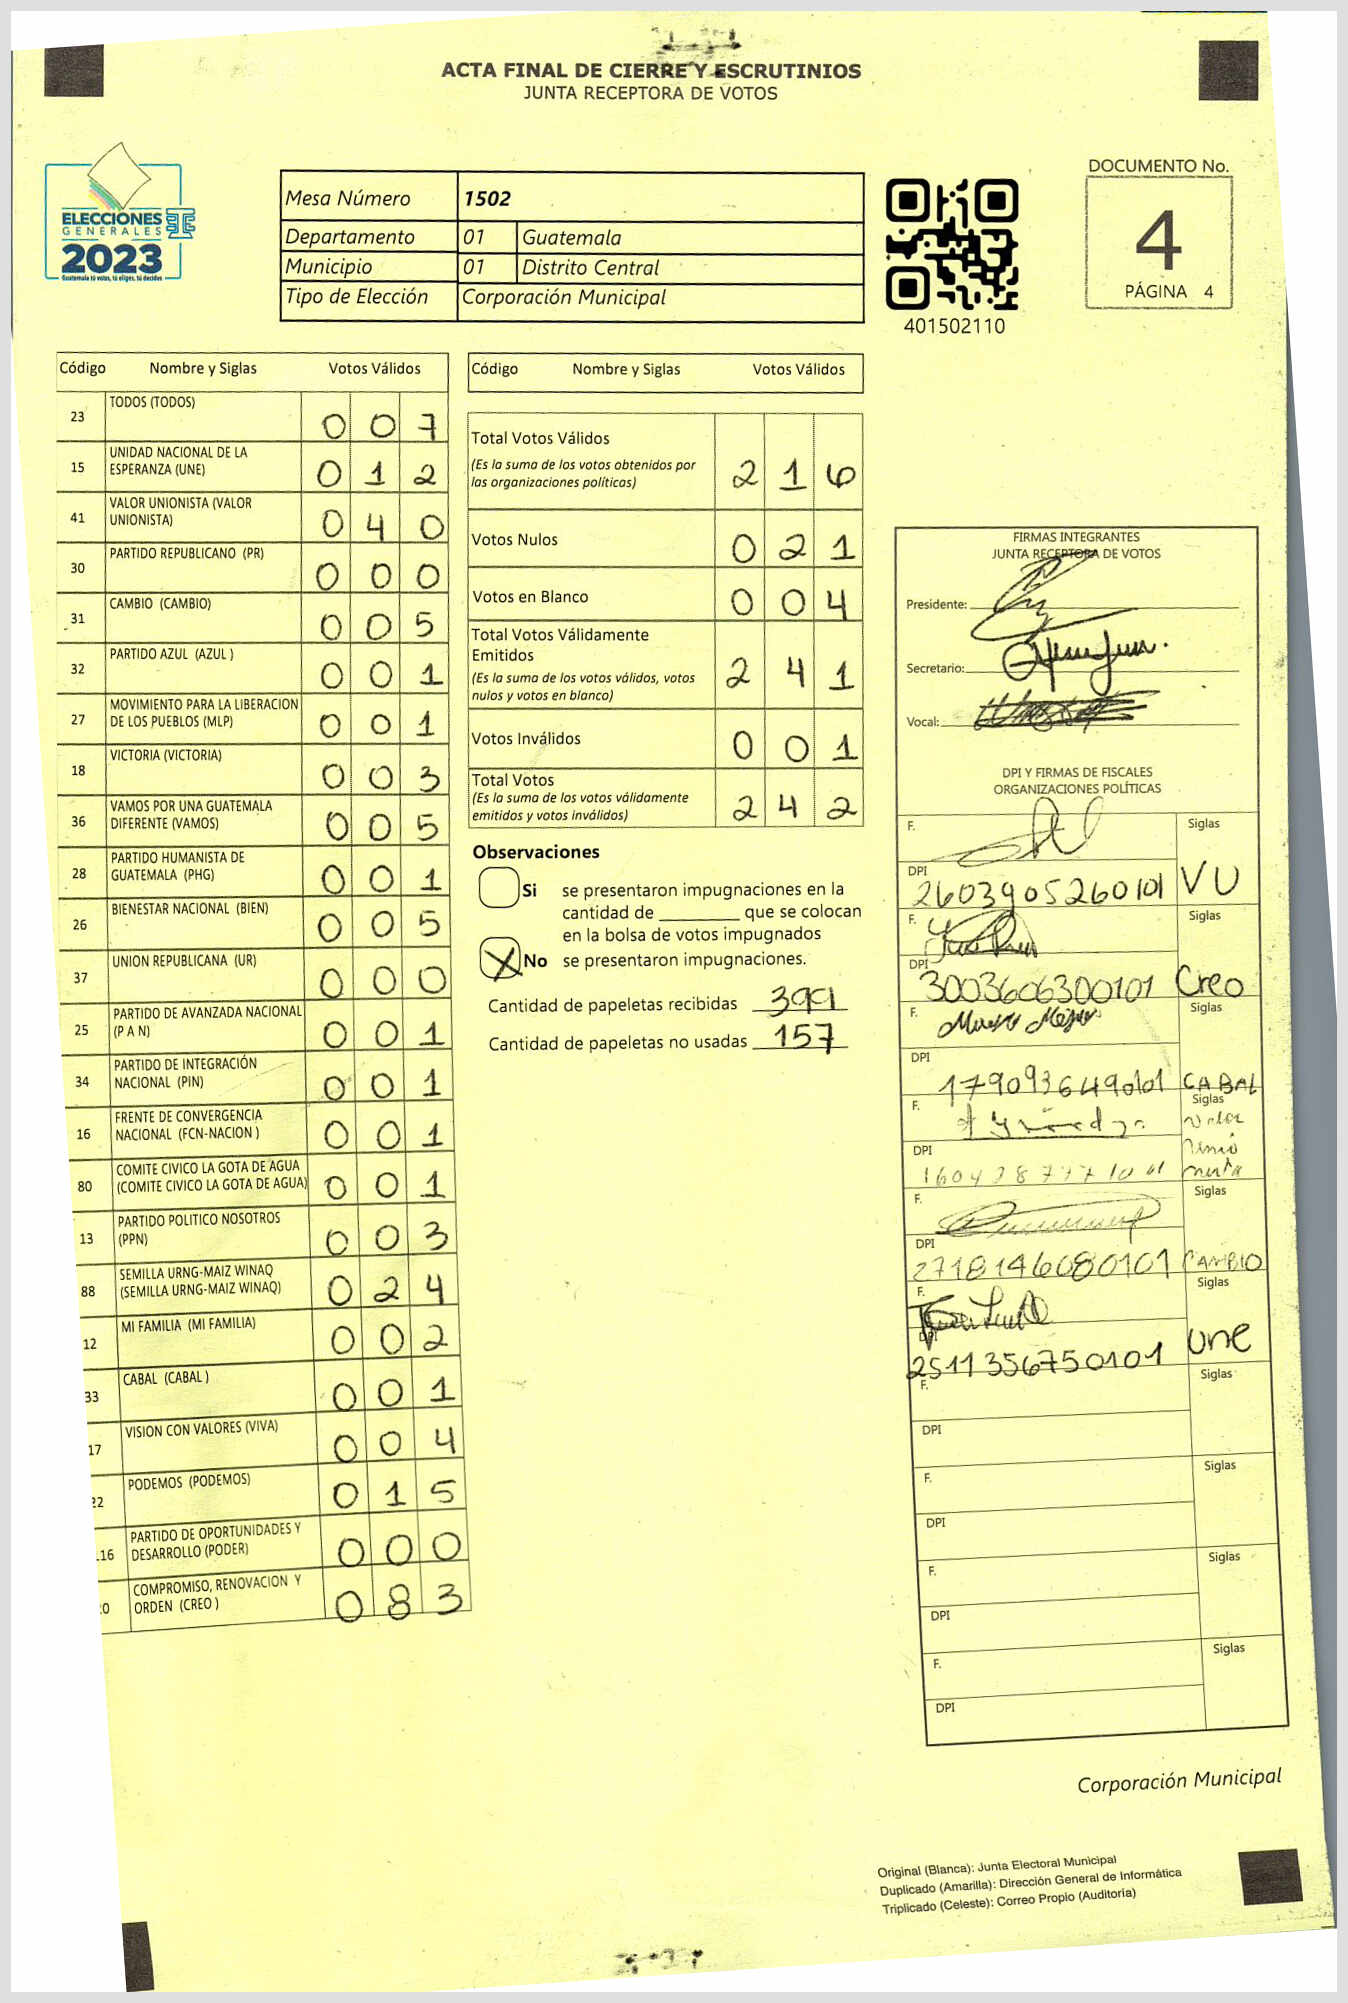 ACTA FINAL DE CIERRE Y ESCRUTINIOS
JUNTA RECEPTORA DE VOTOS
ELECCIONES
GENERALES
2023
Guatemala tú votas, tú eliges, tú decides
Mesa Número 1502
Departamento 01 Guatemala
Municipio 01 Distrito Central
Tipo de Elección Corporación Municipal
401502110
DOCUMENTO No.
4
PÁGINA 4
Código Nombre y Siglas Votos Válidos
23 TODOS (TODOS) 0 0 7
15 UNIDAD NACIONAL DE LA ESPERANZA (UNE) 0 1 2
41 VALOR UNIONISTA (VALOR UNIONISTA) 0 4 0
30 PARTIDO REPUBLICANO (PR) 0 0 0
31 CAMBIO (CAMBIO) 0 0 5
32 PARTIDO AZUL (AZUL ) 0 0 1
27 MOVIMIENTO PARA LA LIBERACION DE LOS PUEBLOS (MLP) 0 0 1
18 VICTORIA (VICTORIA) 0 0 3
36 VAMOS POR UNA GUATEMALA DIFERENTE (VAMOS) 0 0 5
28 PARTIDO HUMANISTA DE GUATEMALA (PHG) 0 0 1
26 BIENESTAR NACIONAL (BIEN) 0 0 5
37 UNION REPUBLICANA (UR) 0 0 0
25 PARTIDO DE AVANZADA NACIONAL (P A N) 0 0 1
34 PARTIDO DE INTEGRACIÓN NACIONAL (PIN) 0 0 1
16 FRENTE DE CONVERGENCIA NACIONAL (FCN-NACION ) 0 0 1
80 COMITE CIVICO LA GOTA DE AGUA (COMITE CIVICO LA GOTA DE AGUA) 0 0 1
13 PARTIDO POLITICO NOSOTROS (PPN) 0 0 3
88 SEMILLA URNG-MAIZ WINAQ (SEMILLA URNG-MAIZ WINAQ) 0 2 4
12 MI FAMILIA (MI FAMILIA) 0 0 2
33 CABAL (CABAL ) 0 0 1
17 VISION CON VALORES (VIVA) 0 0 4
22 PODEMOS (PODEMOS) 0 1 5
16 PARTIDO DE OPORTUNIDADES Y DESARROLLO (PODER) 0 0 0
0 COMPROMISO, RENOVACION Y ORDEN (CREO ) 0 8 3
Código Nombre y Siglas Votos Válidos
Total Votos Válidos
(Es la suma de los votos obtenidos por
las organizaciones políticas) 2 1 6
Votos Nulos 0 2 1
Votos en Blanco 0 0 4
Total Votos Válidamente
Emitidos
(Es la suma de los votos válidos, votos
nulos y votos en blanco) 2 4 1
Votos Inválidos 0 0 1
Total Votos
(Es la suma de los votos válidamente
emitidos y votos inválidos) 2 4 2
Observaciones
Si se presentaron impugnaciones en la
cantidad de ________ que se colocan
en la bolsa de votos impugnados
X No se presentaron impugnaciones.
Cantidad de papeletas recibidas 399
Cantidad de papeletas no usadas 157
FIRMAS INTEGRANTES
JUNTA RECEPTORA DE VOTOS
Presidente:
Secretario:
Vocal:
DPI Y FIRMAS DE FISCALES
ORGANIZACIONES POLÍTICAS
F. Siglas
DPI 2603905260101 VU
F. Siglas
DPI 3003606300101 Creo
F. Siglas
DPI 1790936490101 CABAL
F. Siglas
DPI Valor Unionista
F. Siglas
DPI 2718146080101 CAMBIO
F. Siglas
DPI 2511356750101 Une
F. Siglas
DPI
F. Siglas
DPI
F. Siglas
DPI
F. Siglas
DPI
Corporación Municipal
Original (Blanca): Junta Electoral Municipal
Duplicado (Amarilla): Dirección General de Informática
Triplicado (Celeste): Correo Propio (Auditoría)